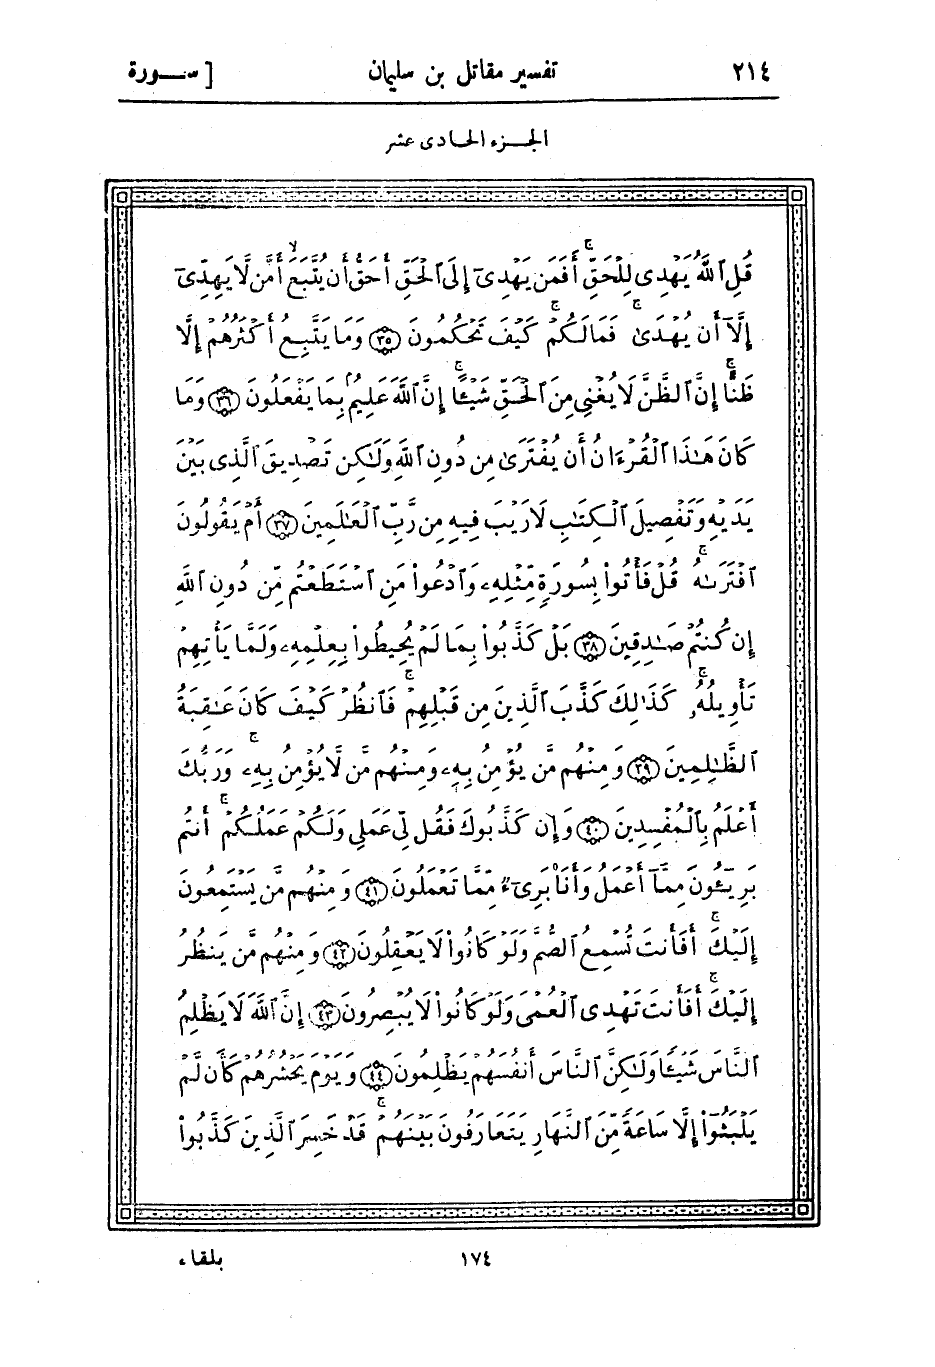 ٢١٤ تفسير مقاتل بن سليمان [ ســـورة
الجـــزء الحـادى عشر
قُلِ ٱللَّهُ يَهۡدِي لِلۡحَقِّۗ أَفَمَن يَهۡدِيٓ إِلَى ٱلۡحَقِّ أَحَقُّ أَن يُتَّبَعَ أَمَّن لَّا يَهِدِّيٓ
إِلَّآ أَن يُهۡدَىٰۖ فَمَا لَكُمۡ كَيۡفَ تَحۡكُمُونَ ٣٥ وَمَا يَتَّبِعُ أَكۡثَرُهُمۡ إِلَّا
ظَنًّاۚ إِنَّ ٱلظَّنَّ لَا يُغۡنِي مِنَ ٱلۡحَقِّ شَيۡـًٔاۚ إِنَّ ٱللَّهَ عَلِيمُۢ بِمَا يَفۡعَلُونَ ٣٦ وَمَا
كَانَ هَٰذَا ٱلۡقُرۡءَانُ أَن يُفۡتَرَىٰ مِن دُونِ ٱللَّهِ وَلَٰكِن تَصۡدِيقَ ٱلَّذِي بَيۡنَ
يَدَيۡهِ وَتَفۡصِيلَ ٱلۡكِتَٰبِ لَا رَيۡبَ فِيهِ مِن رَّبِّ ٱلۡعَٰلَمِينَ ٣٧ أَمۡ يَقُولُونَ
ٱفۡتَرَىٰهُۖ قُلۡ فَأۡتُواْ بِسُورَةٖ مِّثۡلِهِۦ وَٱدۡعُواْ مَنِ ٱسۡتَطَعۡتُم مِّن دُونِ ٱللَّهِ
إِن كُنتُمۡ صَٰدِقِينَ ٣٨ بَلۡ كَذَّبُواْ بِمَا لَمۡ يُحِيطُواْ بِعِلۡمِهِۦ وَلَمَّا يَأۡتِهِمۡ
تَأۡوِيلُهُۥۚ كَذَٰلِكَ كَذَّبَ ٱلَّذِينَ مِن قَبۡلِهِمۡۖ فَٱنظُرۡ كَيۡفَ كَانَ عَٰقِبَةُ
ٱلظَّٰلِمِينَ ٣٩ وَمِنۡهُم مَّن يُؤۡمِنُ بِهِۦ وَمِنۡهُم مَّن لَّا يُؤۡمِنُ بِهِۦۚ وَرَبُّكَ
أَعۡلَمُ بِٱلۡمُفۡسِدِينَ ٤٠ وَإِن كَذَّبُوكَ فَقُل لِّي عَمَلِي وَلَكُمۡ عَمَلُكُمۡۖ أَنتُم
بَرِيٓـُٔونَ مِمَّآ أَعۡمَلُ وَأَنَا۠ بَرِيٓءٞ مِّمَّا تَعۡمَلُونَ ٤١ وَمِنۡهُم مَّن يَسۡتَمِعُونَ
إِلَيۡكَۚ أَفَأَنتَ تُسۡمِعُ ٱلصُّمَّ وَلَوۡ كَانُواْ لَا يَعۡقِلُونَ ٤٢ وَمِنۡهُم مَّن يَنظُرُ
إِلَيۡكَۚ أَفَأَنتَ تَهۡدِي ٱلۡعُمۡيَ وَلَوۡ كَانُواْ لَا يُبۡصِرُونَ ٤٣ إِنَّ ٱللَّهَ لَا يَظۡلِمُ
ٱلنَّاسَ شَيۡـٔٗا وَلَٰكِنَّ ٱلنَّاسَ أَنفُسَهُمۡ يَظۡلِمُونَ ٤٤ وَيَوۡمَ يَحۡشُرُهُمۡ كَأَن لَّمۡ
يَلۡبَثُوٓاْ إِلَّا سَاعَةٗ مِّنَ ٱلنَّهَارِ يَتَعَارَفُونَ بَيۡنَهُمۡۚ قَدۡ خَسِرَ ٱلَّذِينَ كَذَّبُواْ
١٧٤ بلقاء